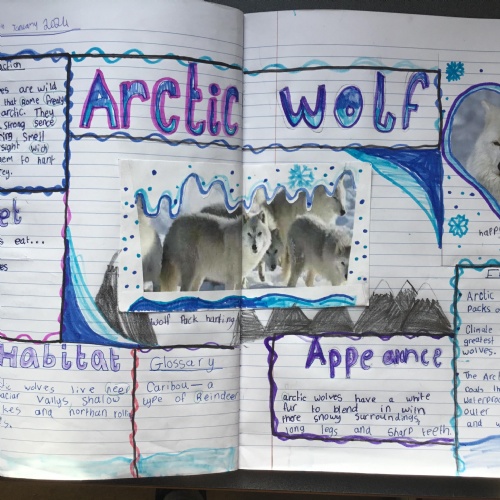 January 2024
are wild
that Rome freely
arctic. They
strong sence
Smell
sight wich
them to hunt
Arctic Wolf
eat...
Wolf Pack hunting
happ
Habitat
wolves live near
Vallys, shallow
and northan
Glossary
Caribou - a
type of Reindeer
Appearance
arctic wolves have a white
fur to blend in with
there snowy surroundings,
long legs and sharp teeth.
Arctic
Packs
Climate
greatest
wolves.
The Arct
coats th
waterproo
outer
and